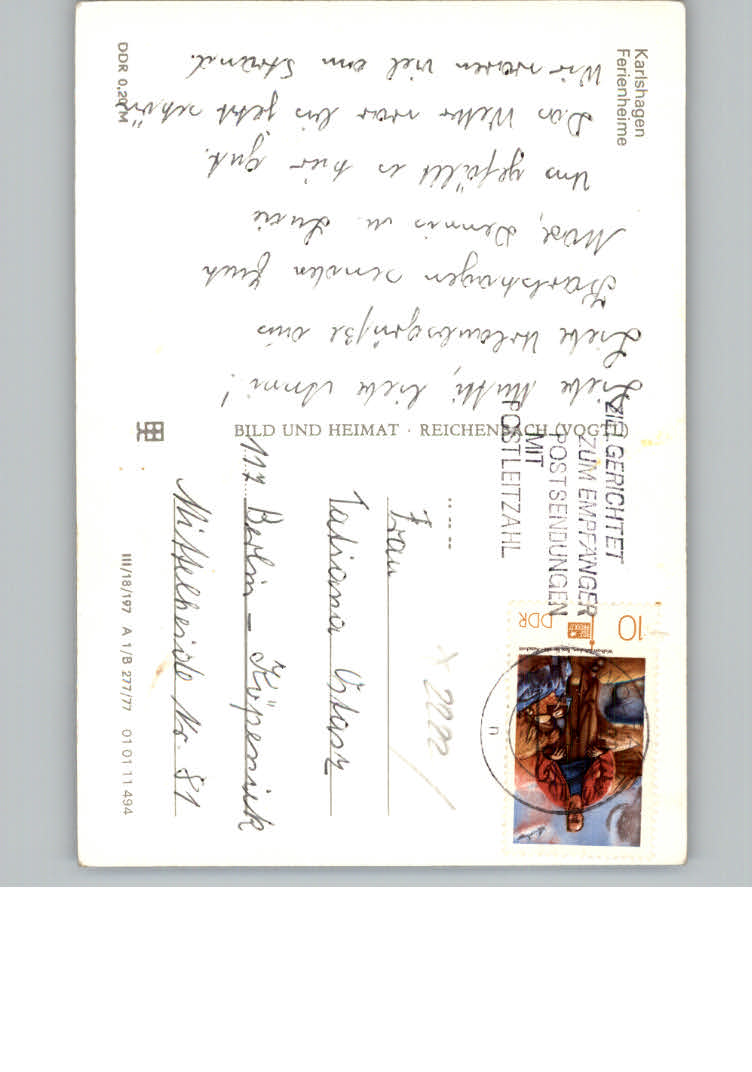 Karlshagen
Ferienheime
Liebe Mutti, liebe Anni!
Liebe Urlaubsgrüße aus
Karlshagen senden Euch
Dennis u.
Uns gefällt es hier gut.
Das Wetter war bis jetzt schön
Wir waren viel am Strand.
DDR 0,20 M
BILD UND HEIMAT · REICHENBACH (VOGTL)
ZIELGERICHTET
ZUM EMPFÄNGER
POSTSENDUNGEN
MIT
POSTLEITZAHL
10
DDR
Frau
Tatiana
117 Berlin – Köpenick
Mittelheide No. 81
III/18/197 A 1/B 277/77 01 01 11 494